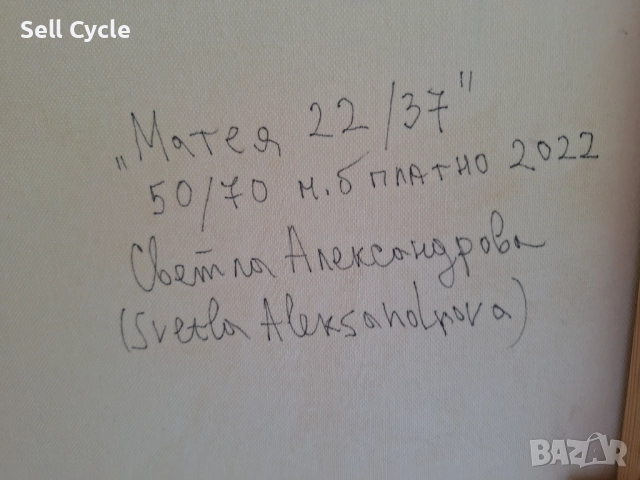 Sell Cycle
„Матея 22/37"
50/70 м.б платно 2022
Светла Александрова
(Svetla Aleksandrova)
BAZAR